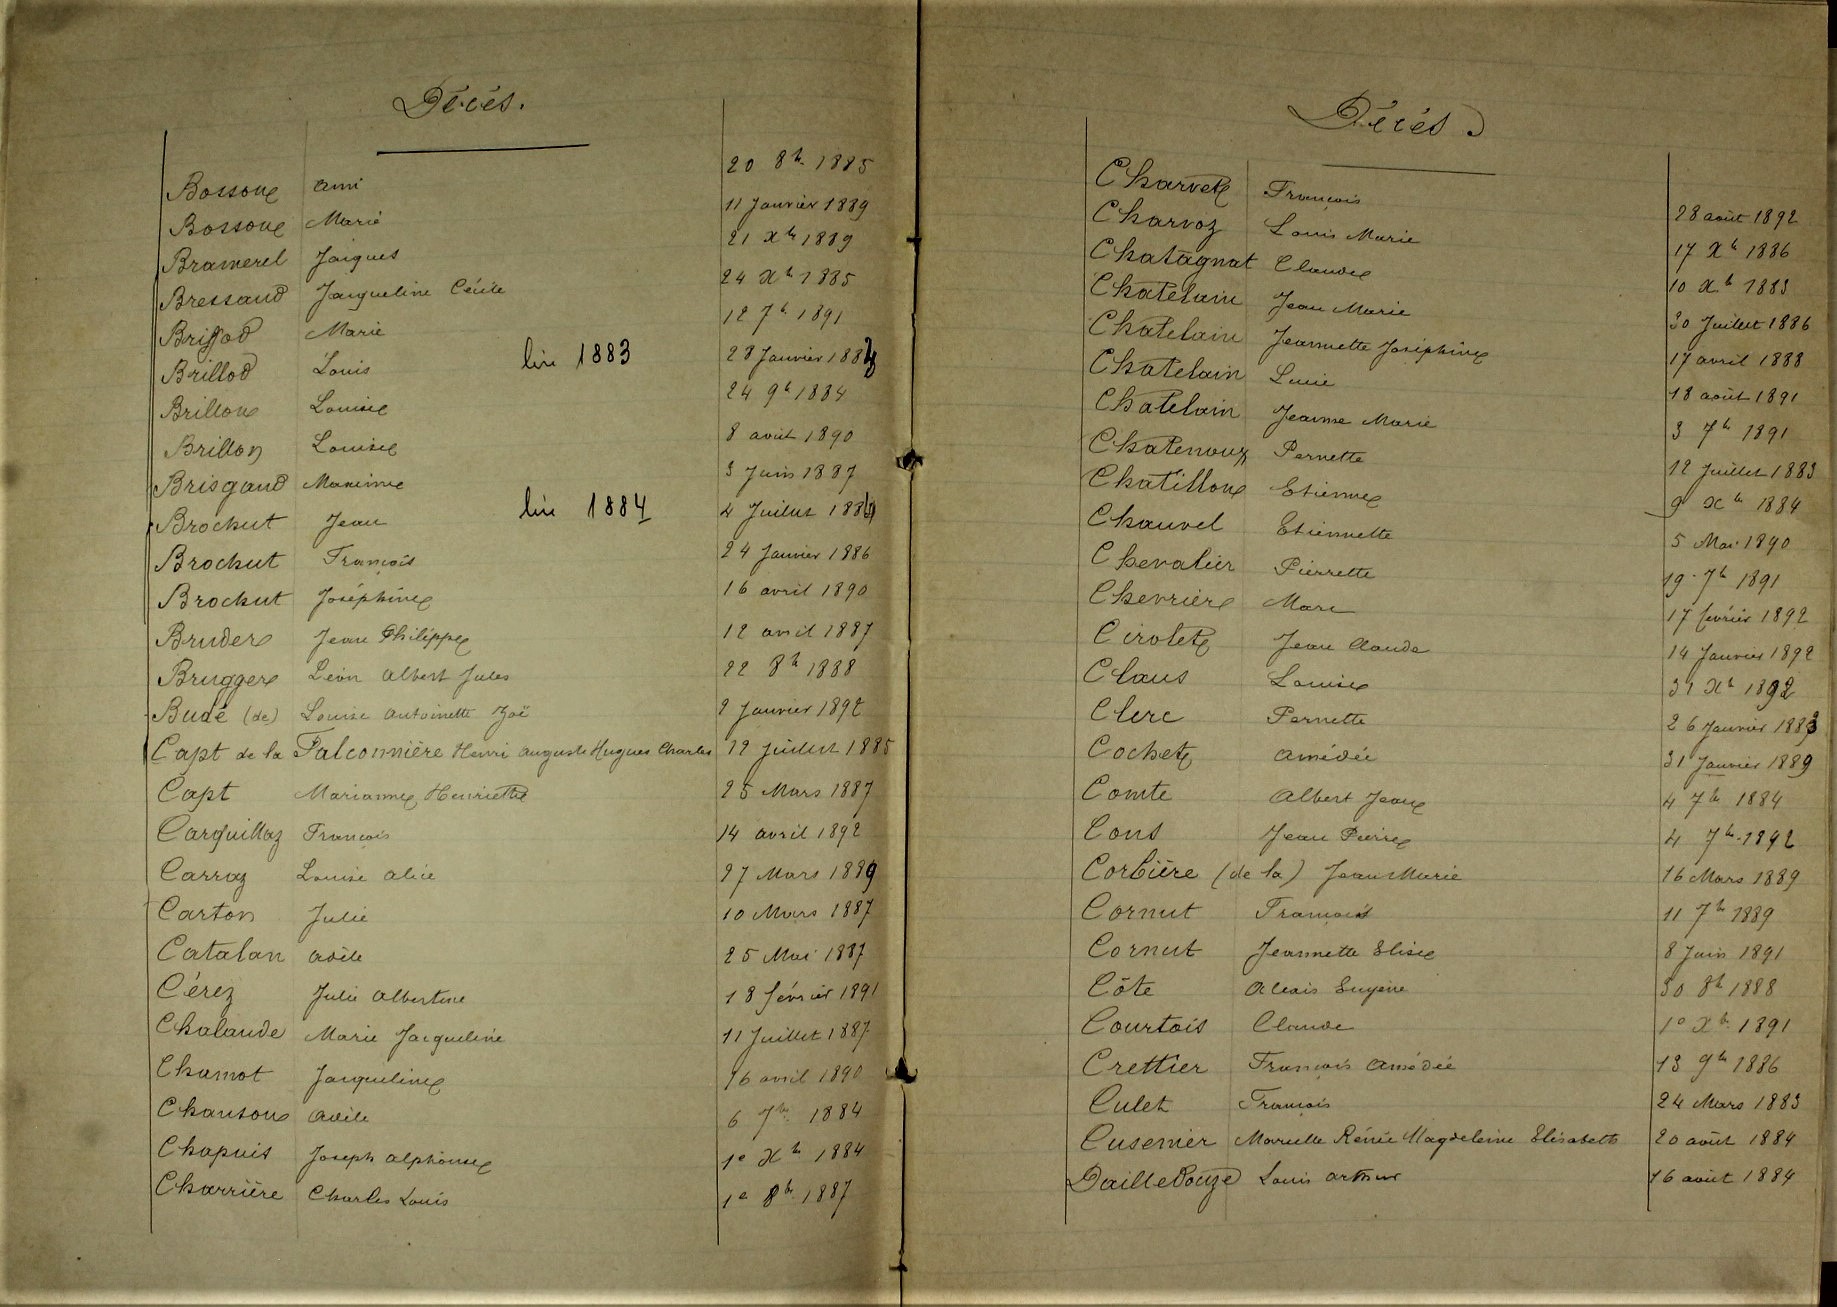 Décès.
Bosson Ami 20 8bre 1885
Bosson Marie 11 Janvier 1889
Bramerel Jaques 21 Xbre 1889
Bressaud Jacqueline Cécile 24 Xbre 1885
Briffod Marie 12 7bre 1891
Brillod Louis lire 1883 28 Janvier 1883
Brillon Louise 24 9bre 1884
Brillon Louise 8 août 1890
Brisgaud Maxime 3 Juin 1887
Brochut Jean lire 1884 4 Juillet 1884
Brochut François 24 Janvier 1886
Brochut Joséphine 16 avril 1890
Bruder Jean Philippe 12 avril 1887
Brugger Léon Albert Jules 22 8bre 1888
Budé (de) Louise Antoinette Zoé 2 Janvier 1892
Capt de la Falconnière Henri Auguste Hugues Charles 12 Juillet 1885
Capt Marianne Henriette 25 Mars 1887
Carquillaz François 14 avril 1892
Carraz Louise Alice 27 Mars 1889
Carton Julie 10 Mars 1887
Catalan Adèle 25 Mai 1887
Cérez Julie Albertine 18 février 1891
Chalande Marie Jacqueline 11 Juillet 1887
Chamot Jacqueline 16 avril 1890
Chanson Adèle 6 7bre 1884
Chapuis Joseph Alphonse 1e Xbre 1884
Charrière Charles Louis 1e 8bre 1887
Décès
Charvet François 28 août 1892
Charvoz Louis Marie 17 Xbre 1886
Chatagnat Claude 10 Xbre 1883
Chatelain Jean Marie 30 Juillet 1886
Chatelain Jeannette Joséphine 17 avril 1888
Chatelain Lucie 18 août 1891
Chatelain Jeanne Marie 3 7bre 1891
Chatenoux Pernette 12 Juillet 1883
Chatillon Etienne 9 Xbre 1884
Chauvel Etiennette 5 Mai 1890
Chevalier Pierrette 19 7bre 1891
Chevrière Marc 17 février 1892
Cirolet Jean Claude 14 Janvier 1892
Claus Louise 31 Xbre 1892
Clerc Pernette 26 Janvier 1883
Cochet Amédée 31 Janvier 1889
Comte Albert Jean 4 7bre 1884
Cons Jean Pierre 4 7bre 1892
Corbière (de la) Jean Marie 16 Mars 1889
Cornut François 11 7bre 1889
Cornut Jeannette Elise 8 Juin 1891
Côte Alexis Eugène 30 8bre 1888
Courtois Claude 1e Xbre 1891
Crettier François Amédée 13 9bre 1886
Culet François 24 Mars 1883
Cusenier Marcelle Rénée Magdeleine Elisabeth 20 août 1884
Dailledouze Louis Arthur 16 août 1884